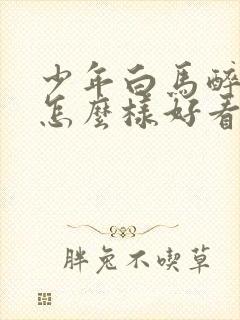 少年白馬醉
怎麼樣好看
胖兔不喫草